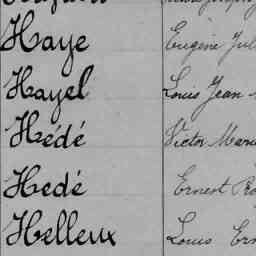 Haye Eugène
Hayel Louis Jean
Hédé Victor
Hedé Ernest
Helleux Louis